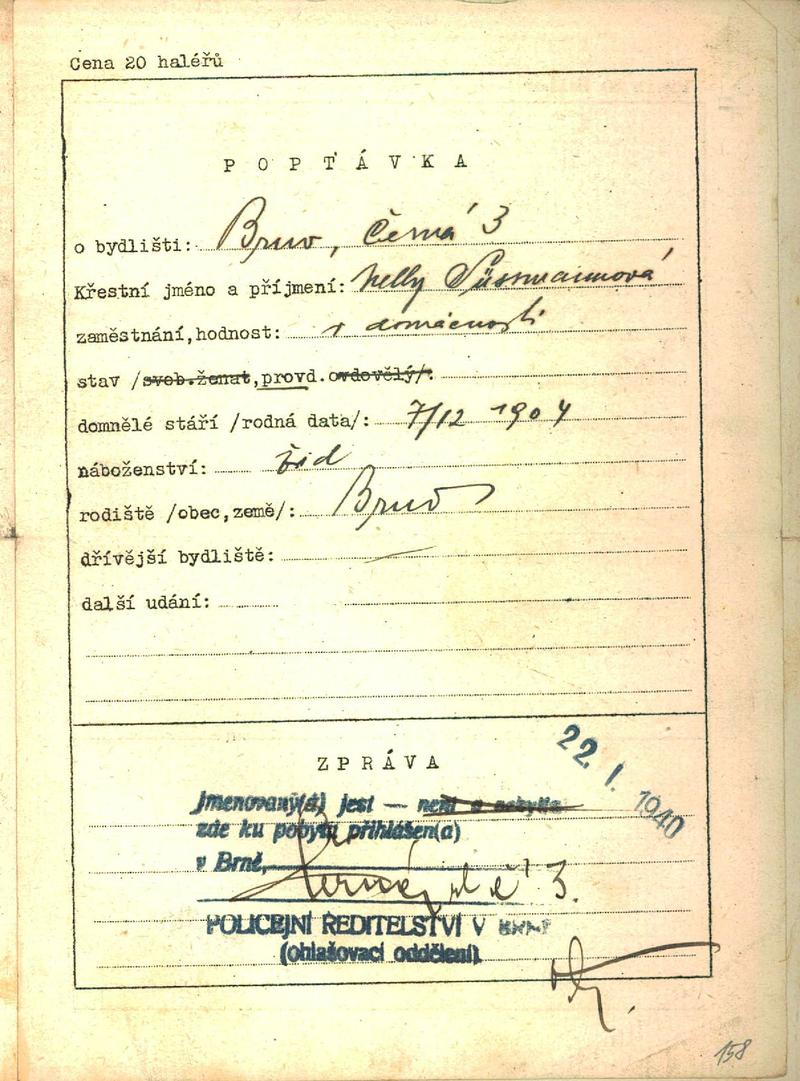 Cena 20 haléřů
POPTÁVKA
o bydlišti: Brno, Černá 3
Křestní jméno a příjmení: Nelly Süssmannová
zaměstnání, hodnost: v domácnosti
stav /svob.ženat, provd. ovdovělý/:
domnělé stáří /rodná data/: 7/12 1904
náboženství: žid
rodiště /obec, země/: Brno
dřívější bydliště: —
další udání:
ZPRÁVA
22. I. 1940
Jmenovaný(á) jest — není a nebyl(a)
zde ku pobytu přihlášen(a)
v Brně,
3.
POLICEJNÍ ŘEDITELSTVÍ V BRNĚ
(ohlašovací oddělení).
158